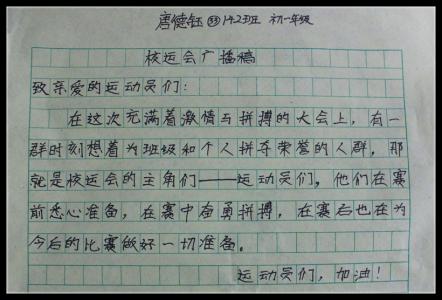 唐德钰 23 142班 初一年级
校运会广播稿
致亲爱的运动员们：
在这次充满着激情与拼搏的大会上，有一
群时刻想着为班级和个人拼夺荣誉的人群，那
就是校运会的主角们——运动员们，他们在赛
前悉心准备，在赛中奋勇拼搏，在赛后也在为
今后的比赛做好一切准备。
运动员们，加油！